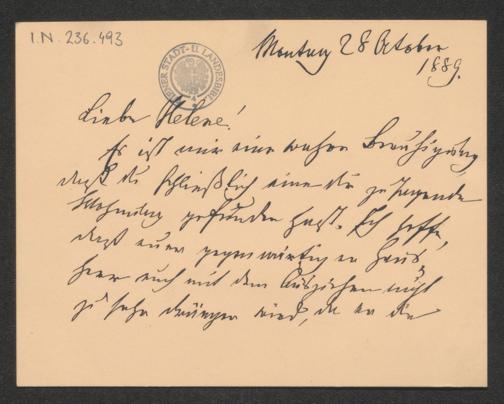 I.N. 236.493
WIENER STADT- U. LANDESBIBL.
Montag 28 October
1889.
Liebe Helene!
Es ist mir eine wahre Beruhigung
daß du schließlich eine dir zusagende
Wohnung gefunden hast. Ich hoffe,
daß euer gegenwärtiger Haus
herr euch mit dem Ausziehen nicht
zu sehr drängen wird, da er die